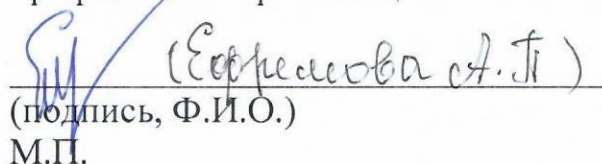 (Ефремова А.П)
(подпись, Ф.И.О.)
М.П.